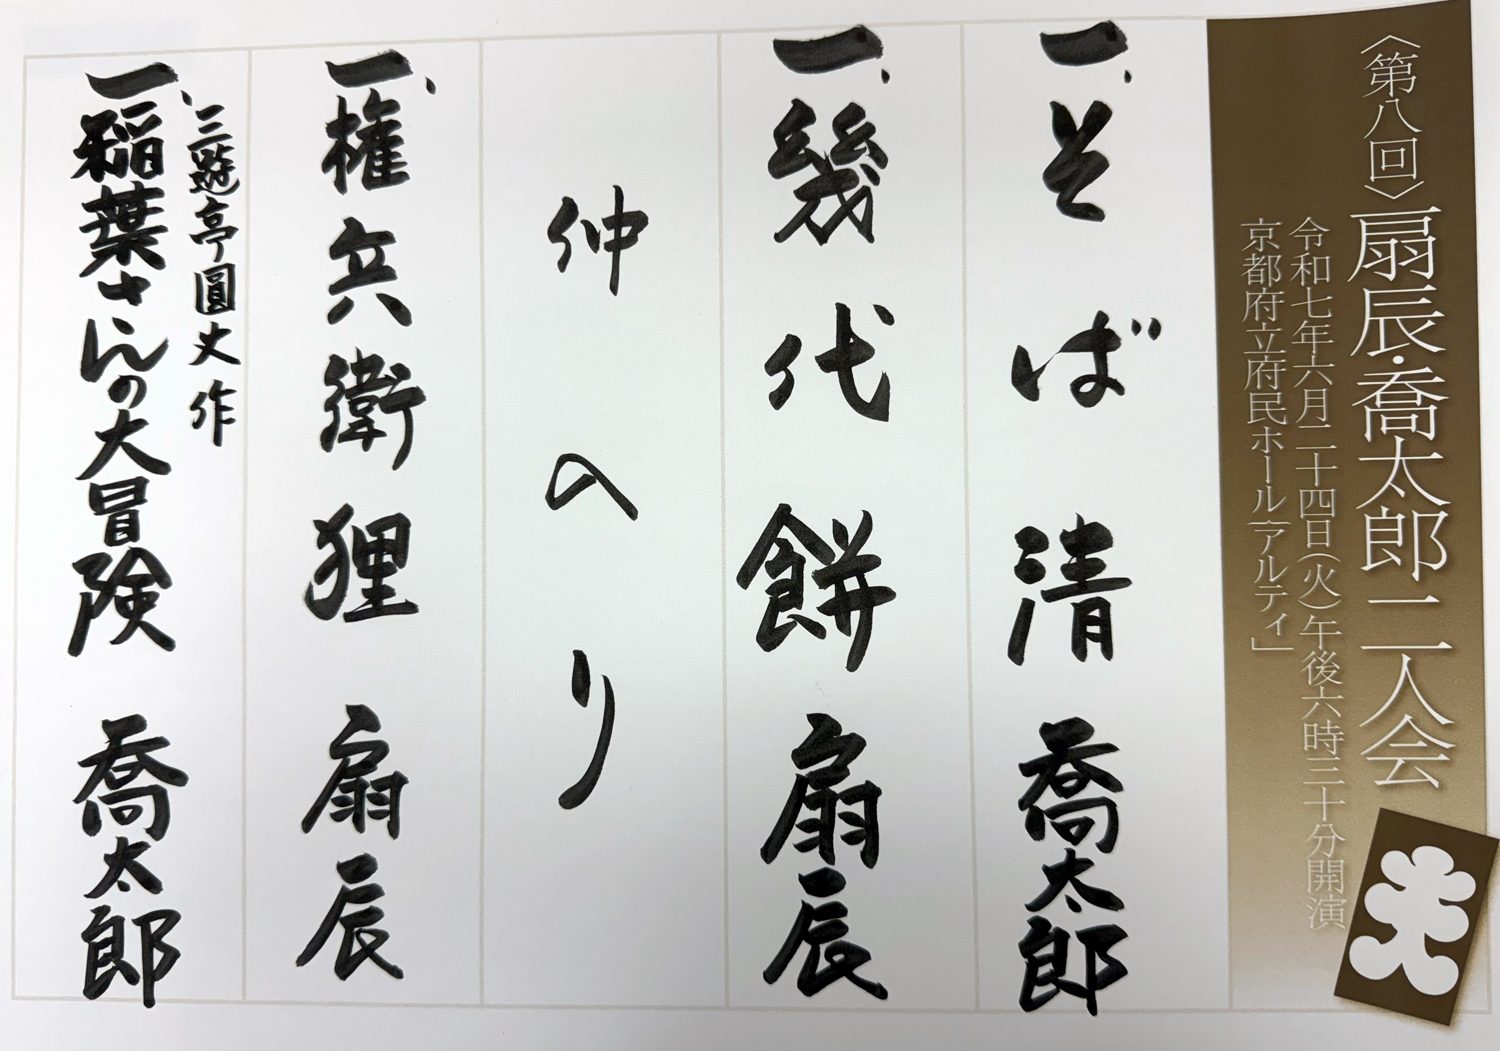 〈第八回〉扇辰・喬太郎二人会
令和七年六月二十四日(火)午後六時三十分開演
京都府立府民ホール「アルティ」
一、そば清 喬太郎
一、幾代餅 扇辰
仲入り
一、権兵衛狸 扇辰
三遊亭圓丈作
一、稲葉さんの大冒険 喬太郎